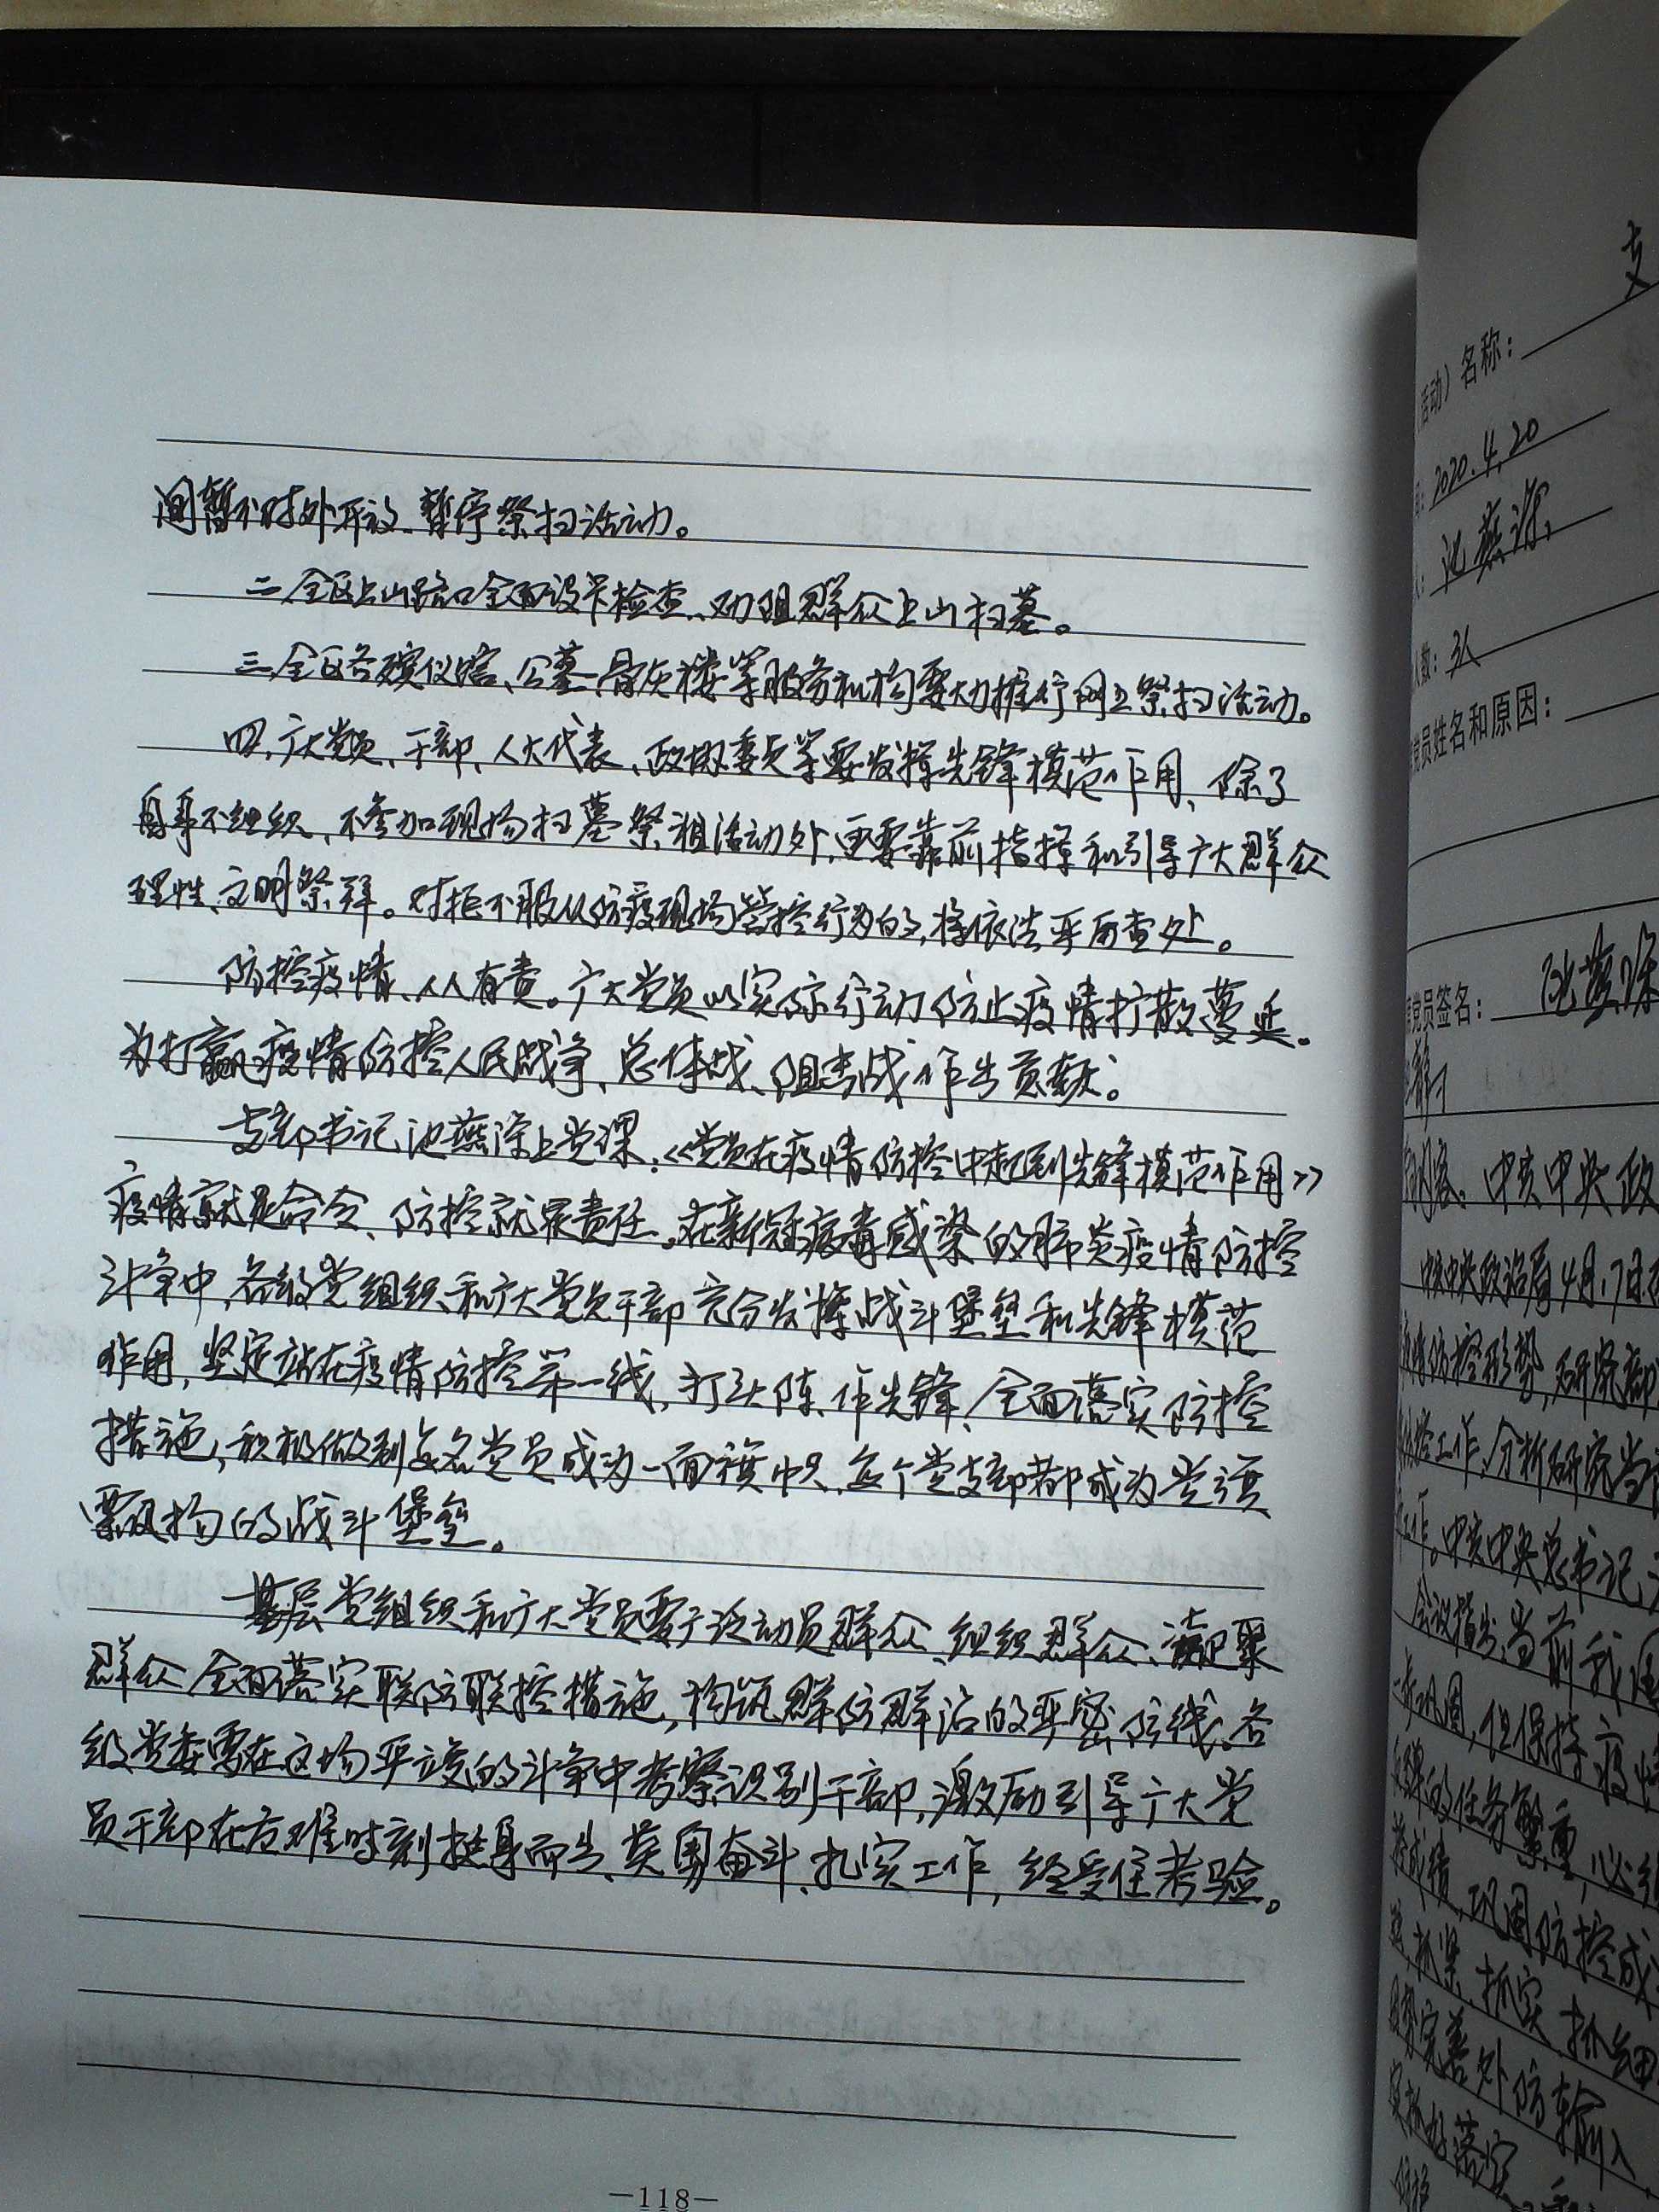 间暂不对外开放、暂停祭扫活动。
二、全区上山路口全面设卡检查、劝阻群众上山扫墓。
三、全区各殡仪馆、公墓、骨灰楼等服务机构要大力推行网上祭扫活动。
四、广大党员、干部、人大代表、政协委员等要发挥先锋模范作用、除了
自身不组织、不参加现场扫墓祭祖活动外,更要靠前指挥和引导广大群众
理性、文明祭拜。对拒不服从防疫现场管控行为的,将依法严厉查处。
防控疫情、人人有责。广大党员以实际行动防止疫情扩散蔓延。
为打赢疫情防控人民战争、总体战、阻击战作出贡献。
支部书记池燕 上党课:《党员在疫情防控中起到先锋模范作用》
疫情就是命令、防控就是责任。在新冠病毒感染的肺炎疫情防控
斗争中,各级党组织和广大党员干部充分发挥战斗堡垒和先锋模范
作用,坚定站在疫情防控第一线,打头阵、作先锋、全面落实防控
措施,积极做到每名党员成为一面旗帜,每个党支部都成为党旗
飘扬的战斗堡垒。
基层党组织和广大党员要广泛动员群众、组织群众、凝聚
群众全面落实联防联控措施,构筑群防群治的严密防线。各
级党委要在这场严峻的斗争中考察识别干部,激励引导广大党
员干部在危难时刻挺身而出、英勇奋斗、扎实工作,经受住考验。
—118—
支
活动)名称:
2020.4.20
人数:3人
党员姓名和原因:
党员签名:
中共中央政
中共中央政治局4月17日
情防控形势,研究部
控工作,分析研究当
工作。中共中央总书记、
会议指出,当前我国
步巩固,但保持疫情
的任务繁重,必须
成绩,巩固防控成
抓紧抓实抓细
完善外防输入
落实